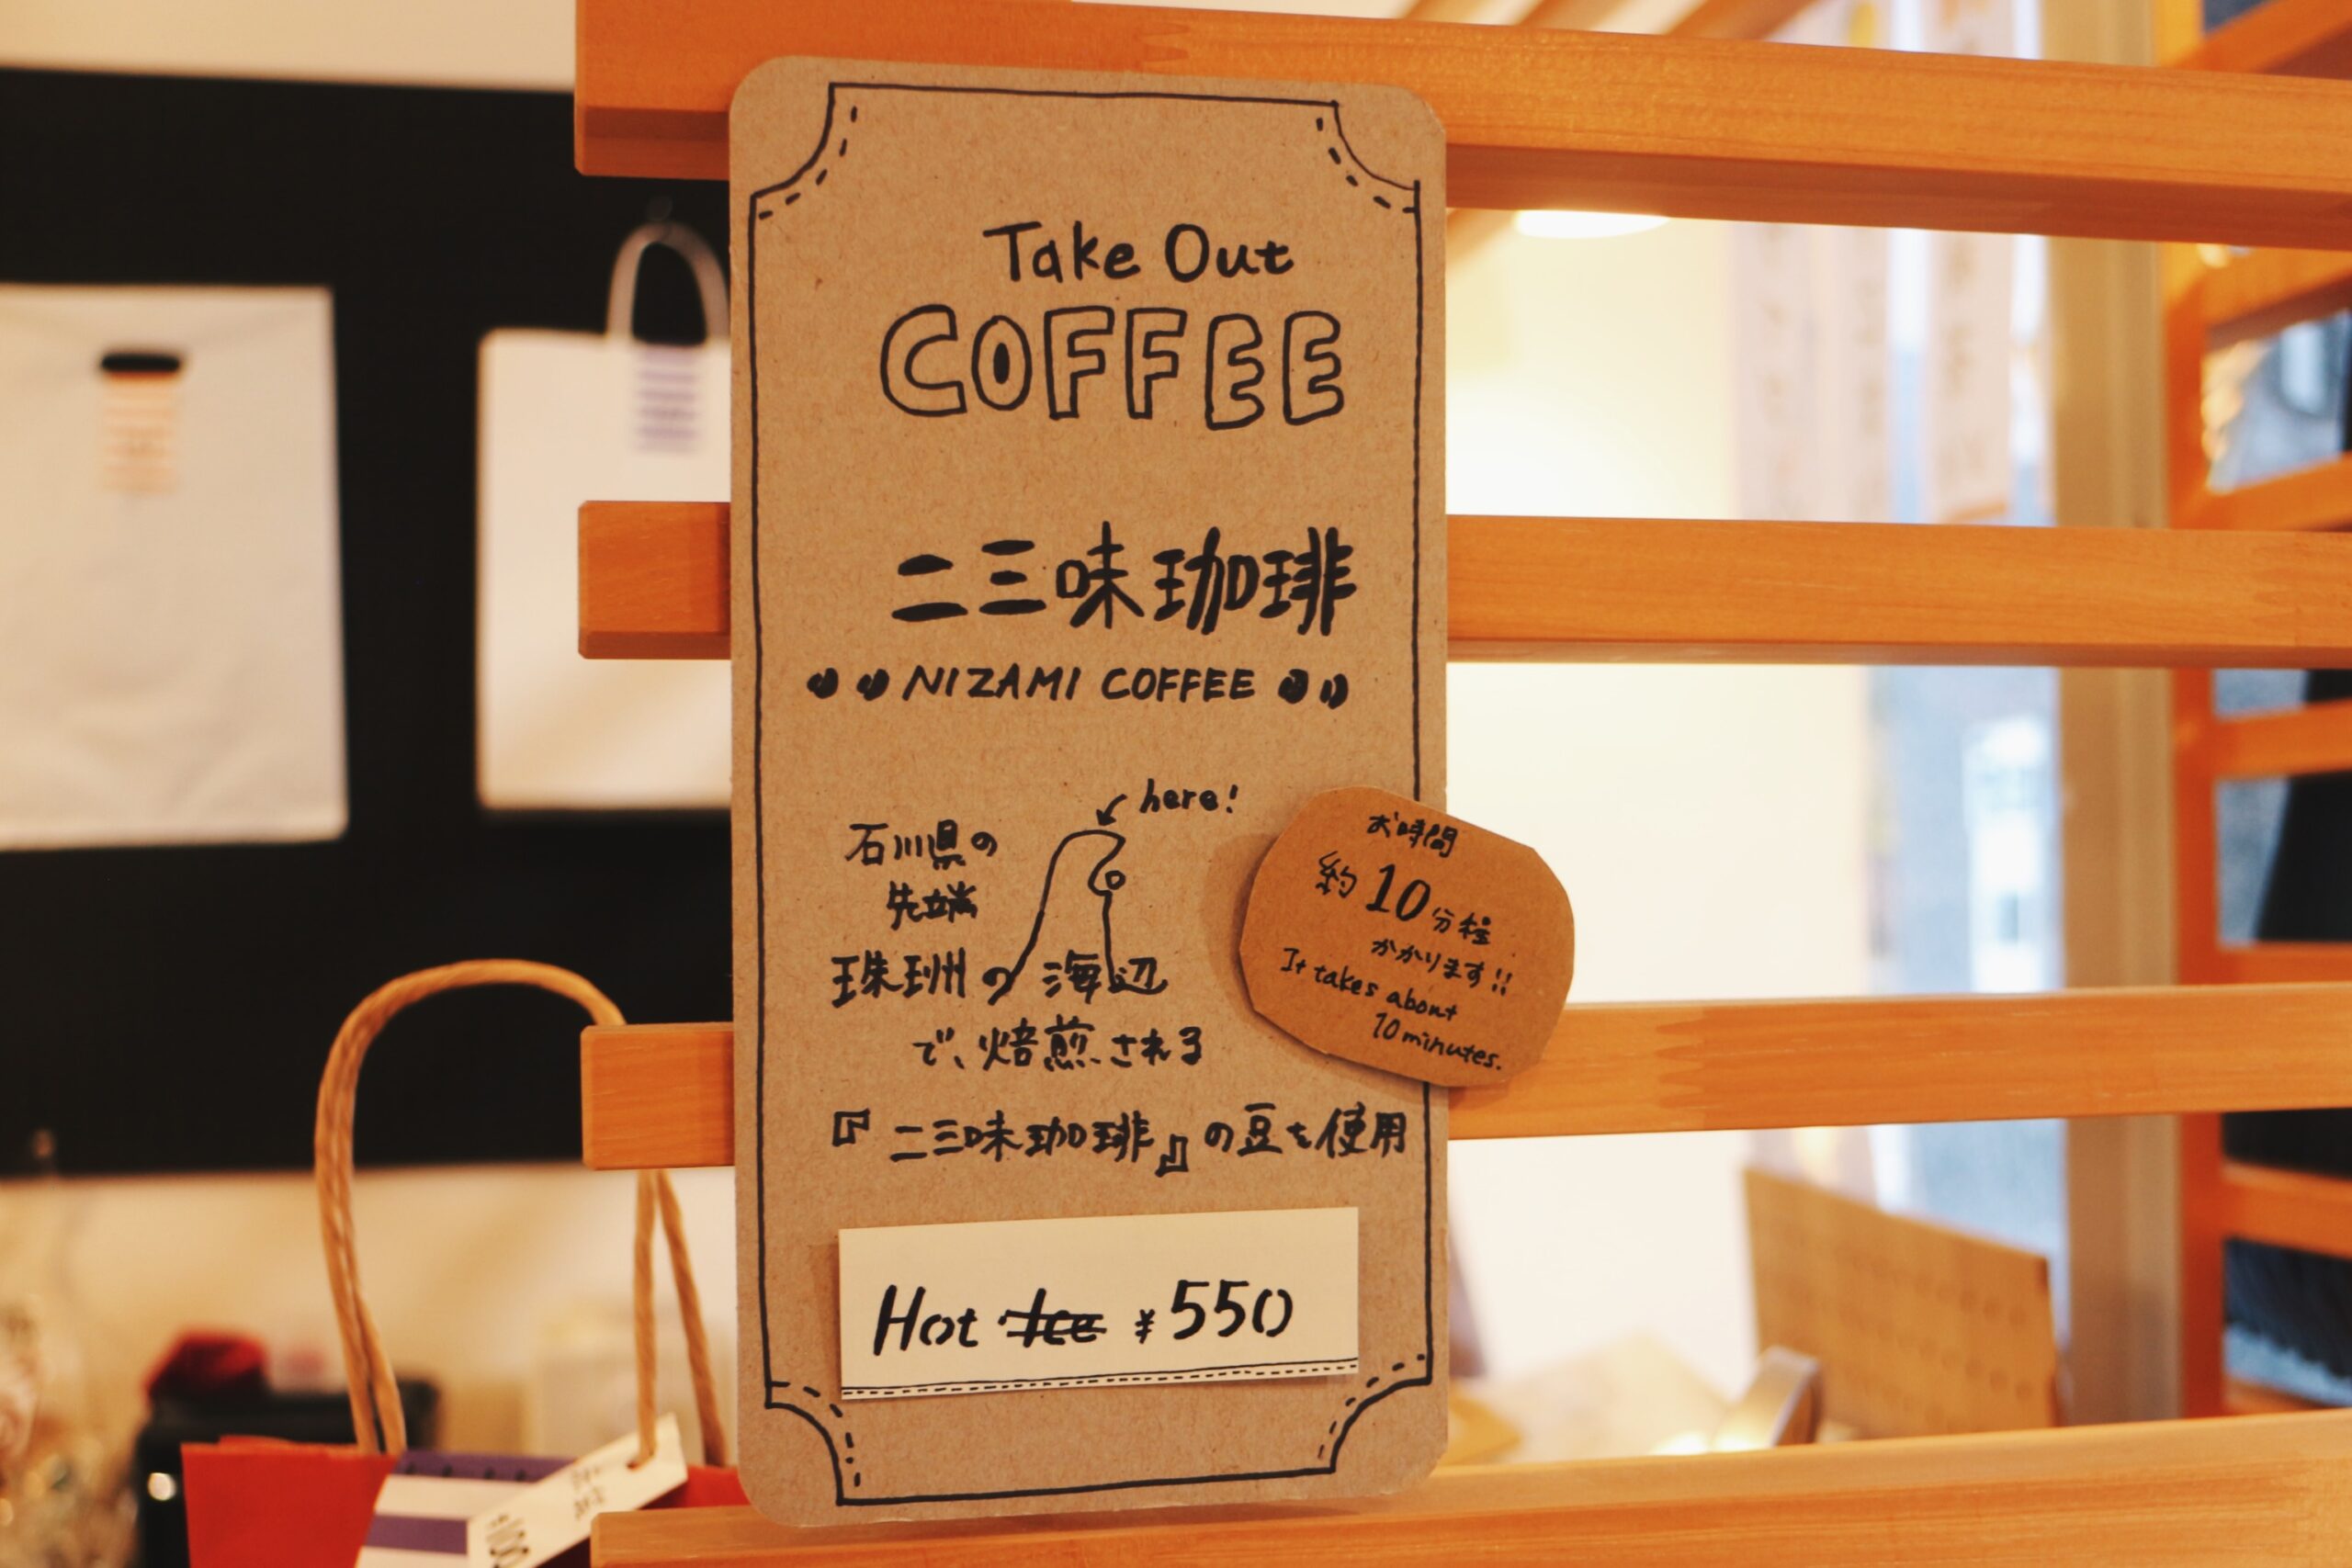 Take Out
COFFEE
二三味珈琲
NIZAMI COFFEE
here!
石川県の
先端
珠洲の海辺
で、焙煎される
『二三味珈琲』の豆を使用
お時間
約10分程
かかります!!
It takes about
10 minutes.
Hot Ice ¥550